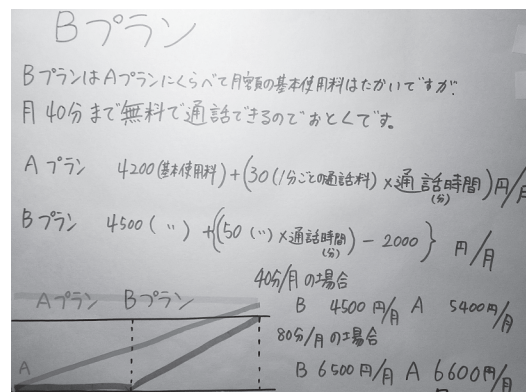 Bプラン
BプランはAプランにくらべて月額の基本使用料はたかいですが
月40分まで無料で通話できるのでおとくです。
Aプラン 4200(基本使用料)+(30(1分ごとの通話料)×通話時間(分))円/月
Bプラン 4500(〃)+{(50(〃)×通話時間(分))-2000} 円/月
40分/月の場合
Aプラン Bプラン
B 4500円/月 A 5400円/月
80分/月の場合
A
B 6500円/月 A 6600円/月